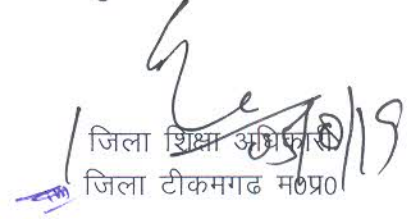 जिला शिक्षा अधिकारी
जिला टीकमगढ म०प्र०